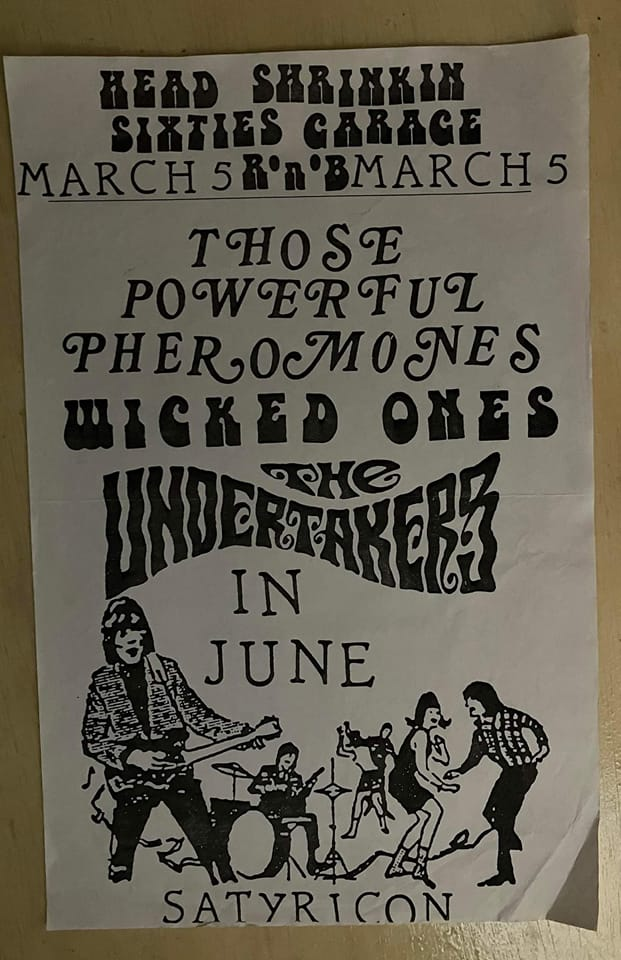 HEAD SHRINKIN
SIXTIES GARAGE
MARCH 5 R'n'B MARCH 5
THOSE
POWERFUL
PHEROMONES
WICKED ONES
THE
UNDERTAKERS
IN
JUNE
SATYRICON